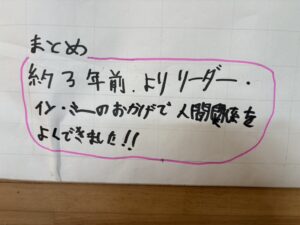 まとめ
約3年前.よりリーダー・
イン・ミーのおかげで人間関係を
よくできました!!